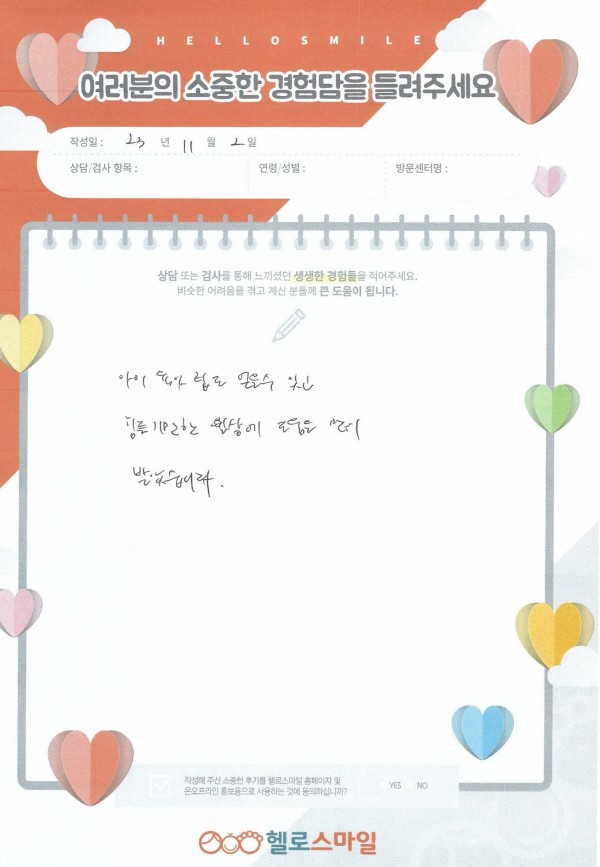 HELLOSMILE
여러분의 소중한 경험담을 들려주세요
작성일 : 23 년 11 월 2 일
상담/검사 항목 : 연령/성별 : 방문센터명 :
상담 또는 검사를 통해 느끼셨던 생생한 경험들을 적어주세요.
비슷한 어려움을 겪고 계신 분들께 큰 도움이 됩니다.
아이 육아 팁도 얻을수 있고
힘들 일상에 도움을 많이
받았습니다.
작성해 주신 소중한 후기를 헬로스마일 홈페이지 및
온오프라인 홍보용으로 사용하는 것에 동의하십니까? YES NO
헬로스마일